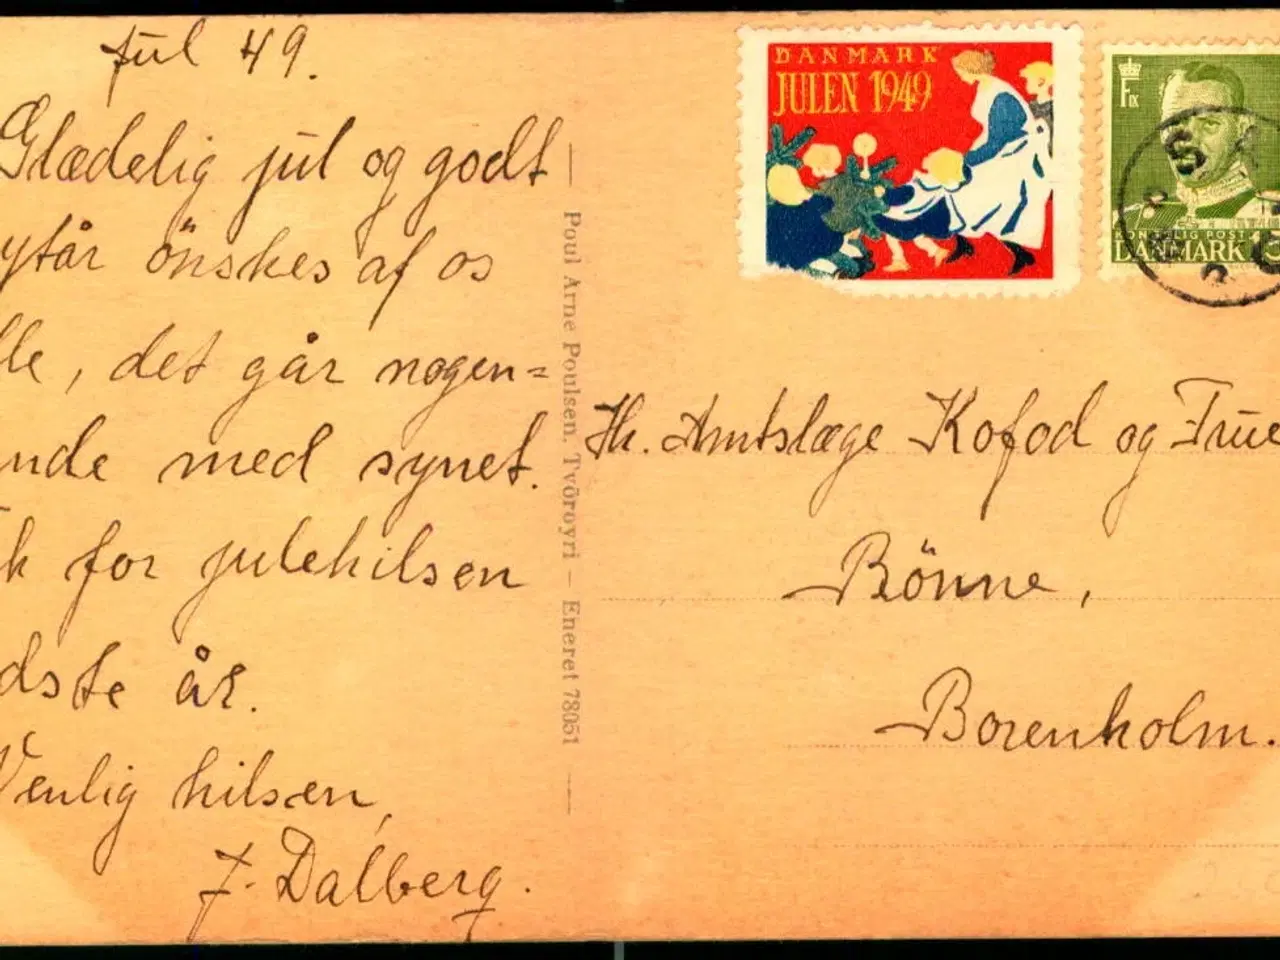 Jul 49.
Glædelig jul og godt
ytår önskes af os
lle, det går nogen=
nde med synet.
k for julehilsen
dste år.
Venlig hilsen,
J. Dalberg.
— Poul Arne Poulsen. Tvöroyri — Eneret 78051 —
DANMARK
JULEN 1949
F IX
KONGELIG POST
DANMARK 15
Hr. Amtslæge Kofod og Frue
Rönne,
Borenholm.